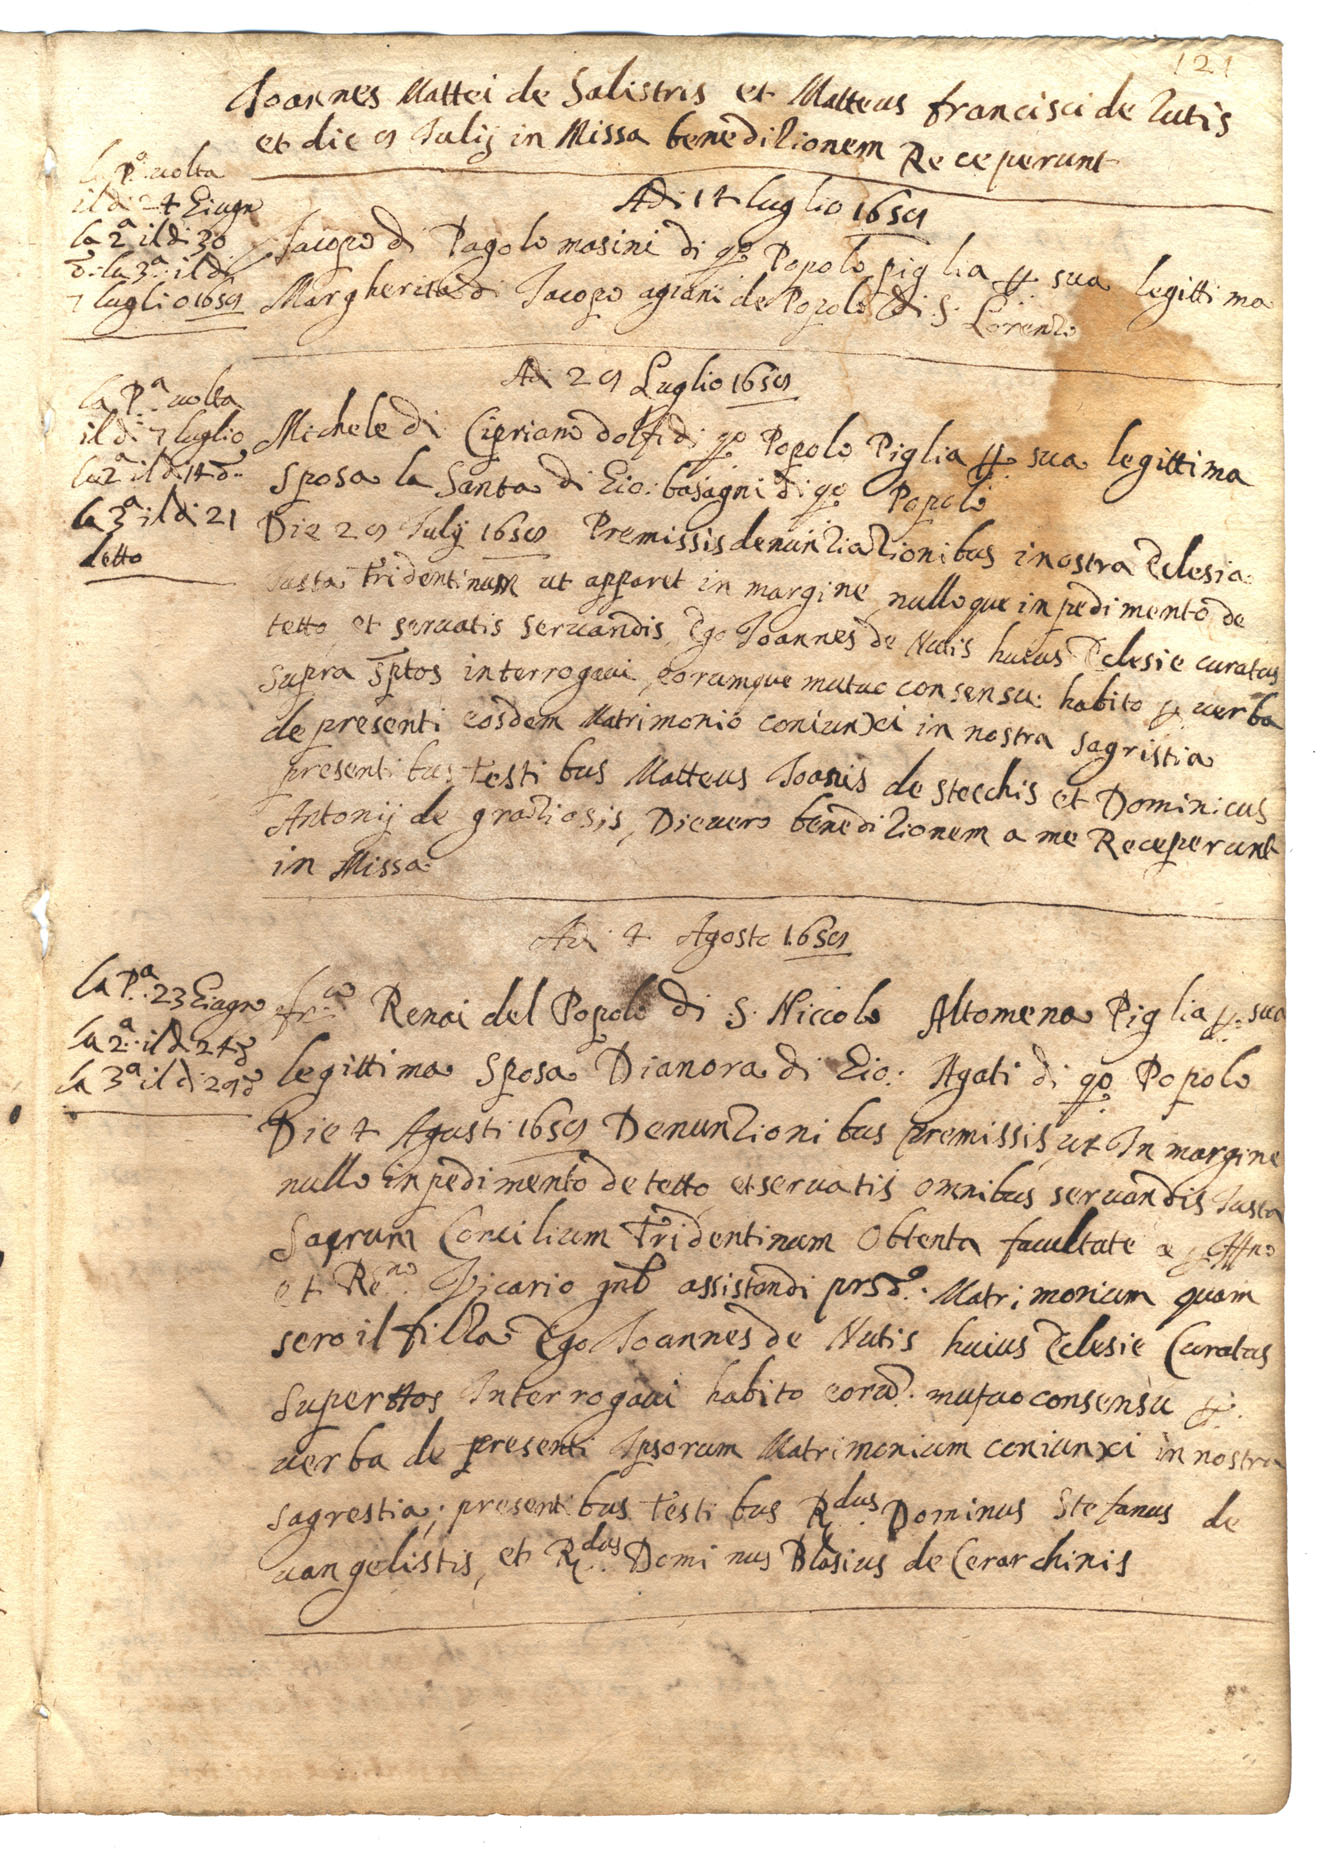 121
Joannes Mattei de Salistris et Matteus francisci de Tutis
et die 9 Julij in Missa benedizionem Receperunt
la P.ª uolta
il dì 24 Giugn
la 2ª il dì 30
d: la 3ª il dì
7 luglio 1659
Adi 14 luglio 1659
Jacopo di Pagolo masini di qo Popolo piglia p sua legittima
Margherita di Jacopo del Popolo di S. Lorenzo
la P.ª uolta
il dì 7 luglio
la 2ª il dì 14 d.
la 3ª il dì 21
detto
Adi 29 Luglio 1659
Michele di Cipriano dolfi di qo Popolo Piglia p sua legittima
Sposa la Santa di Gio: basagni di qo Popolo
Die 29 Julij 1659 Premissis denunziazionibus inostra Eclesia
Justa Tridentinum ut apparet in margine nulloque inpedimento de
tetto et seruatis seruandis, Ego Joannes de Nutis huius Eclesie curatus
supra sptos interrogaui, eorumque mutuo consensu: habito p uerba
de presenti eosdem Matrimonio coniunxi in nostra sagristia
presentibus testibus Matteus Joanis de stecchis et Dominicus
Antonij de graziosis, Die uero benedizionem a me Receperunt
in Missa
Adi 4 Agosto 1659
la P.ª 23 Giugn
la 2ª il dì 24 d
la 3ª il dì 29 d
fr.co Renai del Popolo di S. Niccolo Altomena Piglia p sua
legittima Sposa Dianora di Gio: Agati di qo Popolo
Die 4 Agusti 1659 Denunzionibus premissis, ut In margine
nullo inpedimento detetto et seruatis omnibus seruandis Justa
Sagrum Concilium Tridentinum Obtenta facultate a
et Re.no Vicario assistendi Matrimonium quam
Ego Joannes de Nutis huius Eclesie Curatus
Superttos Interrogaui habito eorud. mutuo consensu p
uerba de presenti Ipsorum Matrimonium coniunxi in nostra
sagrestia; presentibus testibus R.dus Dominus Stefanus de
uangelistis, et R.dus Dominus Blasius de Cerarchinis